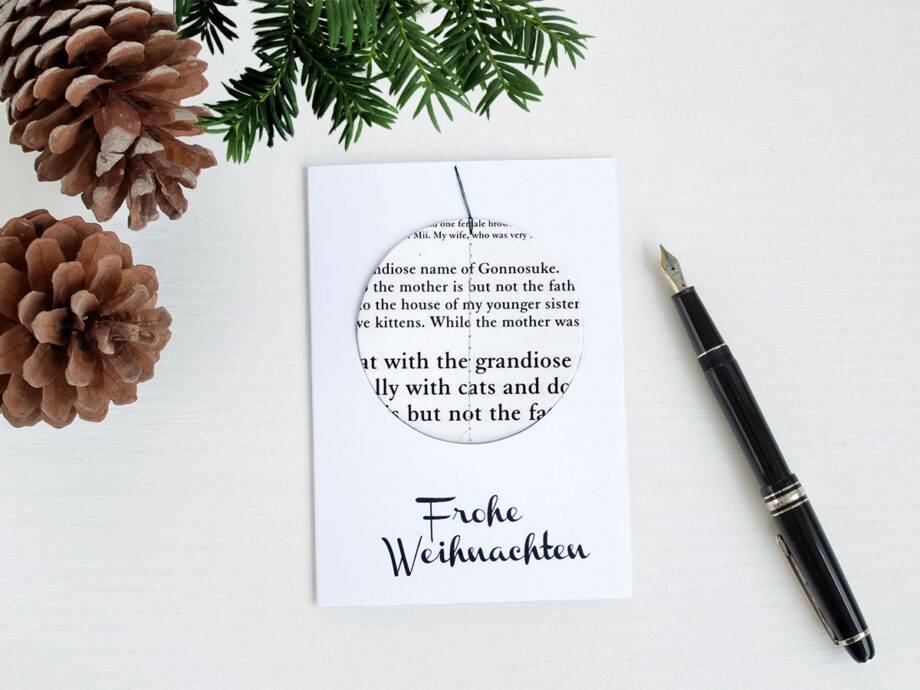 one female brow
Mii. My wife, who was very
ndiose name of Gonnosuke.
the mother is but not the fath
o the house of my younger sister
ve kittens. While the mother was
at with the grandiose
lly with cats and do
but not the fa
Frohe
Weihnachten